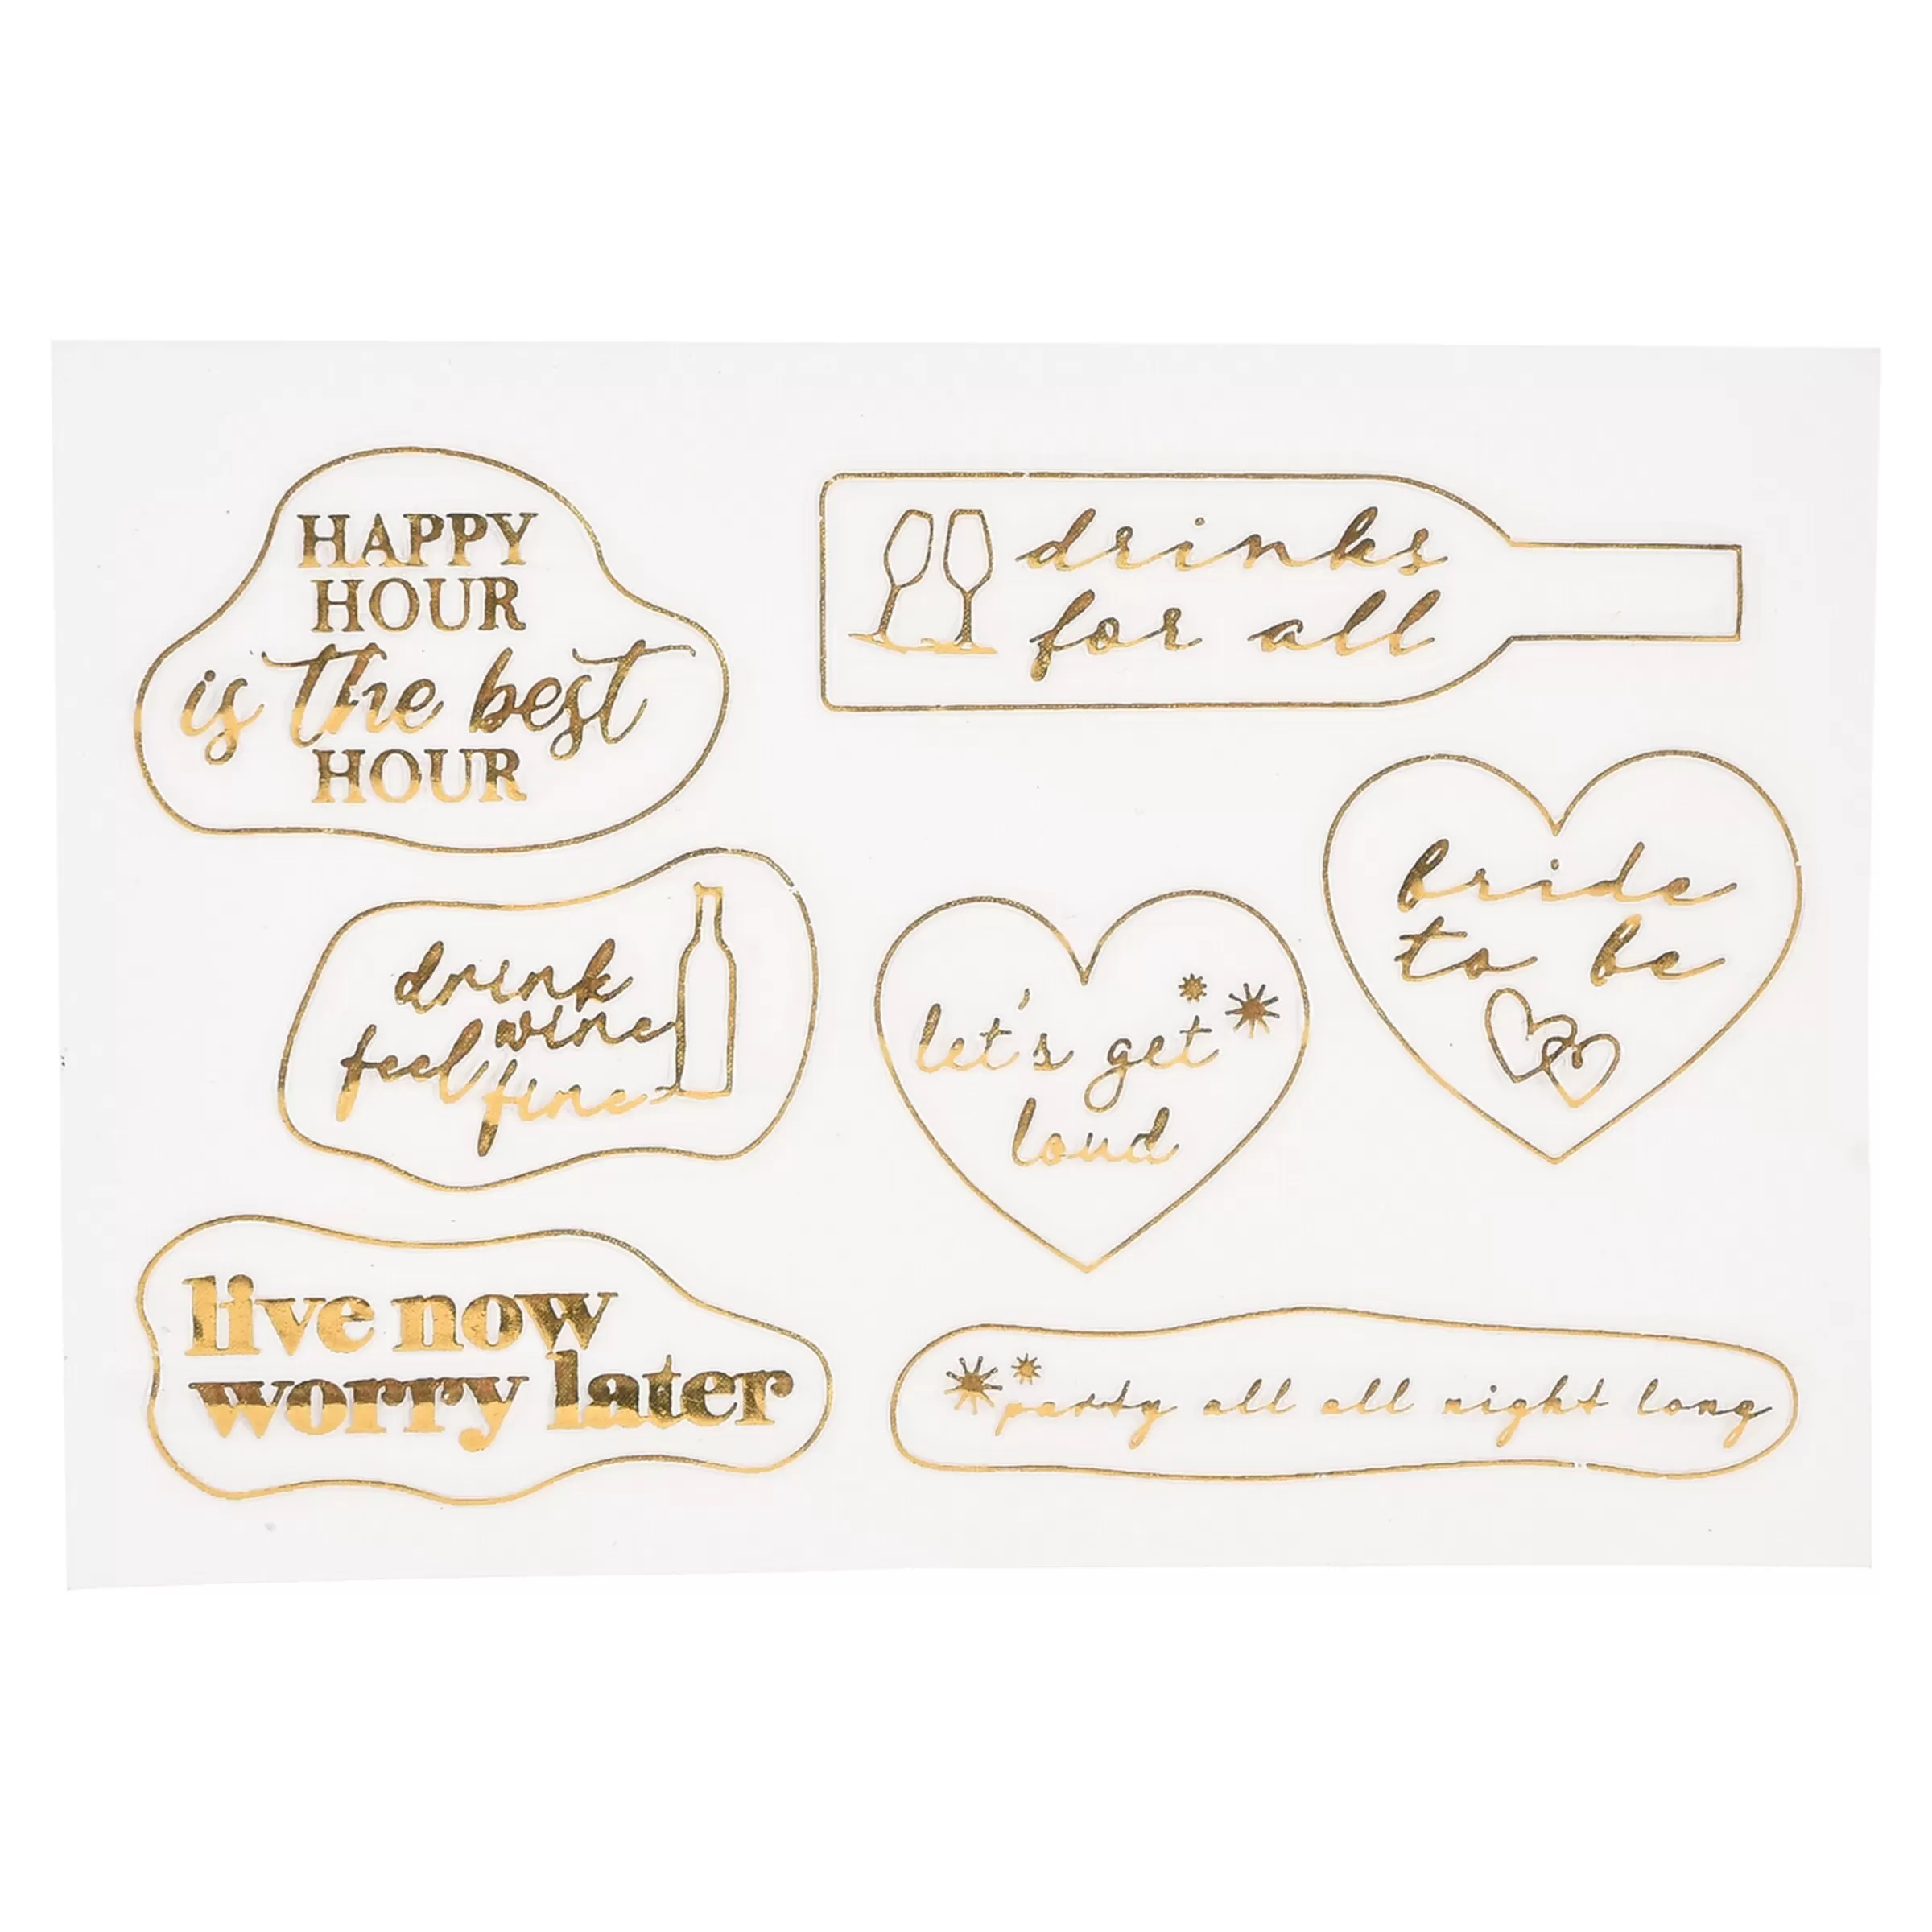 HAPPY
HOUR
is the best
HOUR
drinks
for all
bride
to be
drink
wine
feel
fine
let's get
loud
live now
worry later
party all all night long